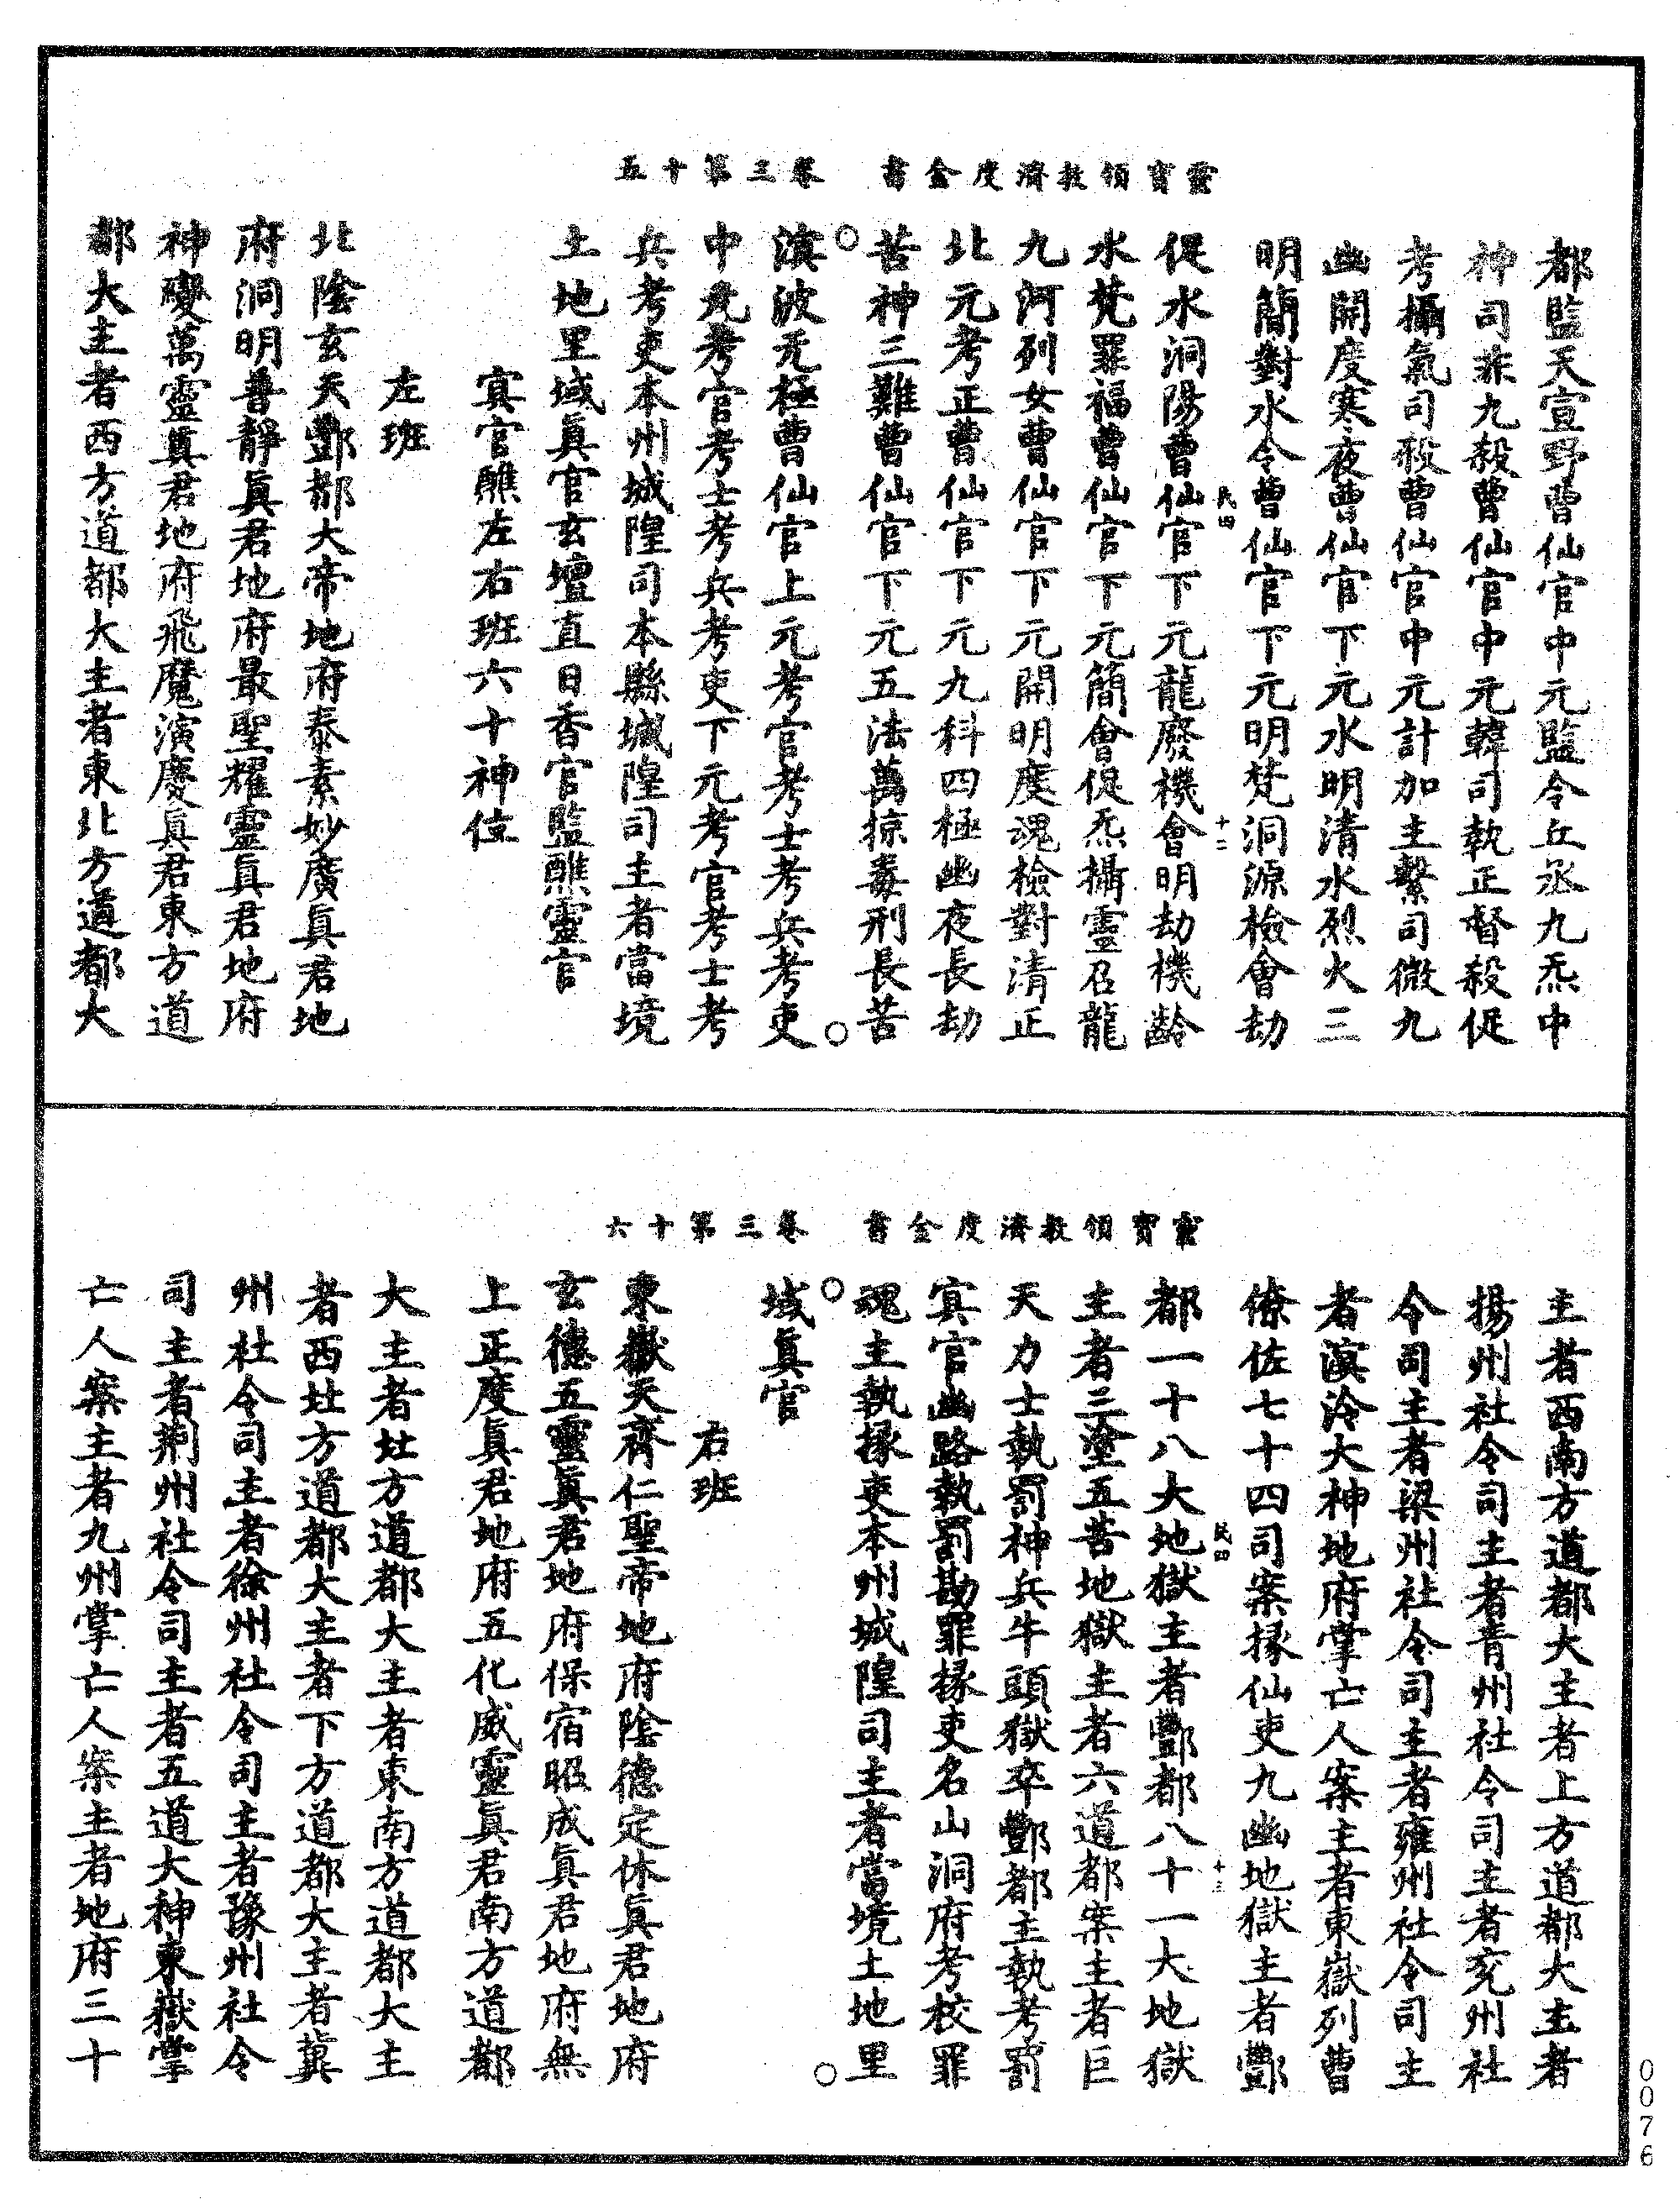 靈寶領教濟度金書　卷三第十五
都監天宣野曹仙官中元監令丘丞九炁中
神司非九殺曹仙官中元韓司執正督殺促
考攝氣司殺曹仙官中元計加主繫司微九
幽開度寒夜曹仙官下元水明清水烈火三
明簡對水令曹仙官下元明梵洞源檢會劫
民四　十二
促水洞陽曹仙官下元龍廢機會明劫機齡
水梵罪福曹仙官下元簡會促炁攝靈召龍
九河列女曹仙官下元開明度魂檢對清正
北元考正曹仙官下元九科四極幽夜長劫
苦神三難曹仙官下元五法萬掠毒刑長苦
滇波无極曹仙官上元考官考士考兵考吏
中元考官考士考兵考吏下元考官考士考
兵考吏本州城隍司本縣城隍司主者當境
土地里域眞官玄壇直日香官監醮靈官
寘官醮左右班六十神位
左班
北陰玄天酆都大帝地府泰素妙廣眞君地
府洞明普靜眞君地府最聖耀靈眞君地府
神變萬靈眞君地府飛魔演慶眞君東方道
都大主者西方道都大主者東北方道都大
靈寶領教濟度金書　卷三第十六
主者西南方道都大主者上方道都大主者
揚州社令司主者青州社令司主者兖州社
令司主者梁州社令司主者雍州社令司主
者溟泠大神地府掌亡人案主者東嶽列曹
僚佐七十四司案掾仙吏九幽地獄主者酆
民四　十三
都一十八大地獄主者酆都八十一大地獄
主者三塗五苦地獄主者六道都案主者巨
天力士執罰神兵牛頭獄卒酆都主執考罰
寘官幽路執罰勘罪掾吏名山洞府考校罪
魂主執掾吏本州城隍司主者當境土地里
域眞官
右班
東嶽天齊仁聖帝地府陰德定休眞君地府
玄德五靈眞君地府保宿昭成眞君地府無
上正度眞君地府五化威靈眞君南方道都
大主者北方道都大主者東南方道都大主
者西北方道都大主者下方道都大主者冀
州社令司主者徐州社令司主者豫州社令
司主者荊州社令司主者五道大神東嶽掌
亡人案主者九州掌亡人案主者地府三十
0076